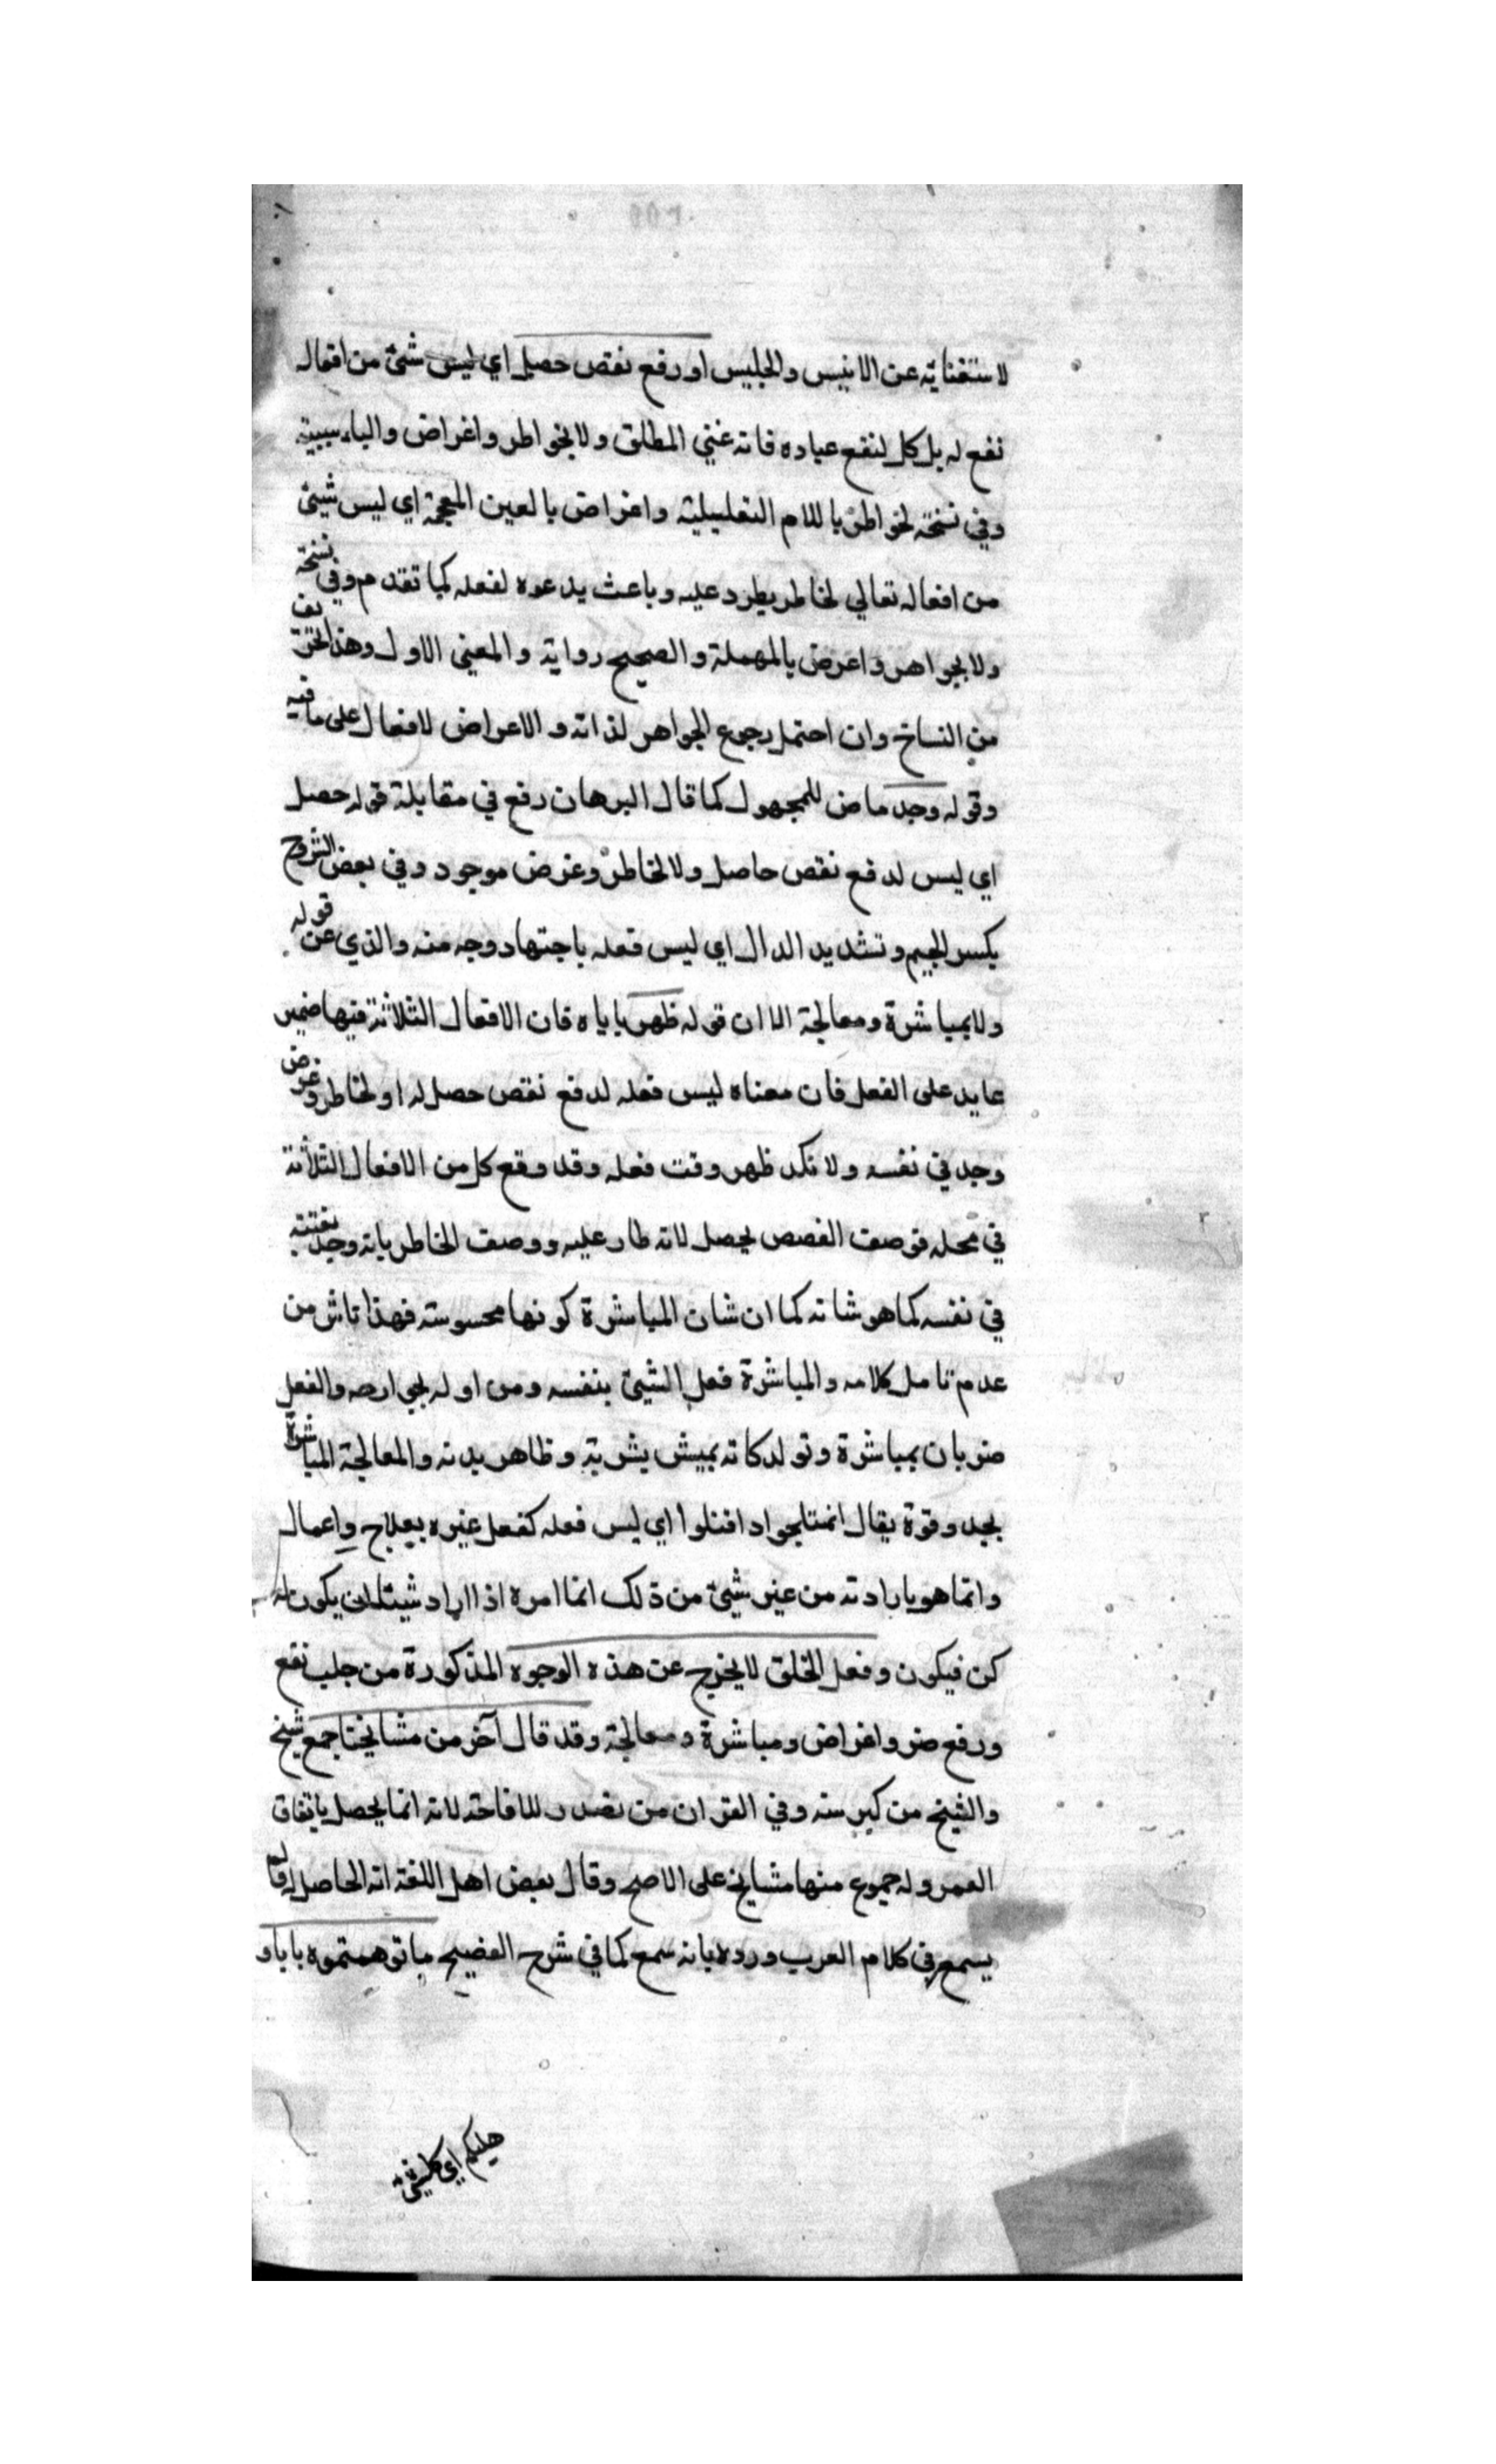 لاستغنايه عن الانيس والجليس او رفع نقص حصل اي ليس شئ من افعاله
نفع له بل كل لنفع عباده فانه غني المطلق ولا بخواطر واغراض والباء سببية
وفي نسخة لخواطر باللام التعليلية واغراض بالعين المعجمة اي ليس شيئ
من افعاله تعالي لخاطر يطرد عليه وباعث يدعوه لفعله كما تقدم وفي نسخة
ولا بجواهر واعرض بالمهملة والصحيح رواية والمعني الاول وهذا تحريف
من النساخ وان احتمل رجوع الجواهر لذاته والاعراض لافعال على ما فيه
وقوله وجد ماض للمجهول كما قال البرهان رفع في مقابلة قوله حصل
اي ليس لدفع نقص حاصل ولا لخاطر وغرض موجود وفي بعض الشروح
بكسر الجيم وتشديد الدال اي ليس فعله باجتهاد وجه منه والذي عن قوله
ولا بمباشرة ومعالجة الا ان قوله ظهر ياباه فان الافعال الثلاثة فيها ضمير
عايد على الفعل فان معناه ليس فعله لدفع نقص حصل له او لخاطر وغرض
وجد في نفسه ولا نكد ظهر وقت فعله وقد وقع كل من الافعال الثلاثة
في محله فوصف القصص بحصل لانه طار عليه ووصف الخاطر بانه وجد بغتته
في نفسه كما هو شانه كما ان شان المباشرة كونها محسوسته فهذا ناش من
عدم تامل كلامه والمباشرة فعل الشيئ بنفسه ومن اوله بجي ارصه والفعل
ضربان بمباشرة وتولد كانه بميش بشريته وظاهر بدنه والمعالجة المباشرة
بجد وقوة يقال افتتلوا اي ليس فعله كفعل غيره بعلاج واعمال
وانما هو بارادته من غير شيئ من ذلك انما امره اذا اراد شيئا ان يكون له
كن فيكون وفعل الخلق لا يخرج عن هذه الوجوه المذكورة من جلب نفع
ورفع ضر واغراض ومباشرة ومعالجة وقد قال آخر من مشايخنا جمع شيخ
والشيخ من كبر سنه وفي القران من تصدر للافاحته لانه انما يحصل باتفاق
العمر وله جموع منها مشايخ على الاصح وقال بعض اهل اللغة انه الحاصل له وقا لم
يسمع في كلام العرب ورده بانه سمع كما في شرح الفصيح ما توهمتموه باباو
هليكم اي